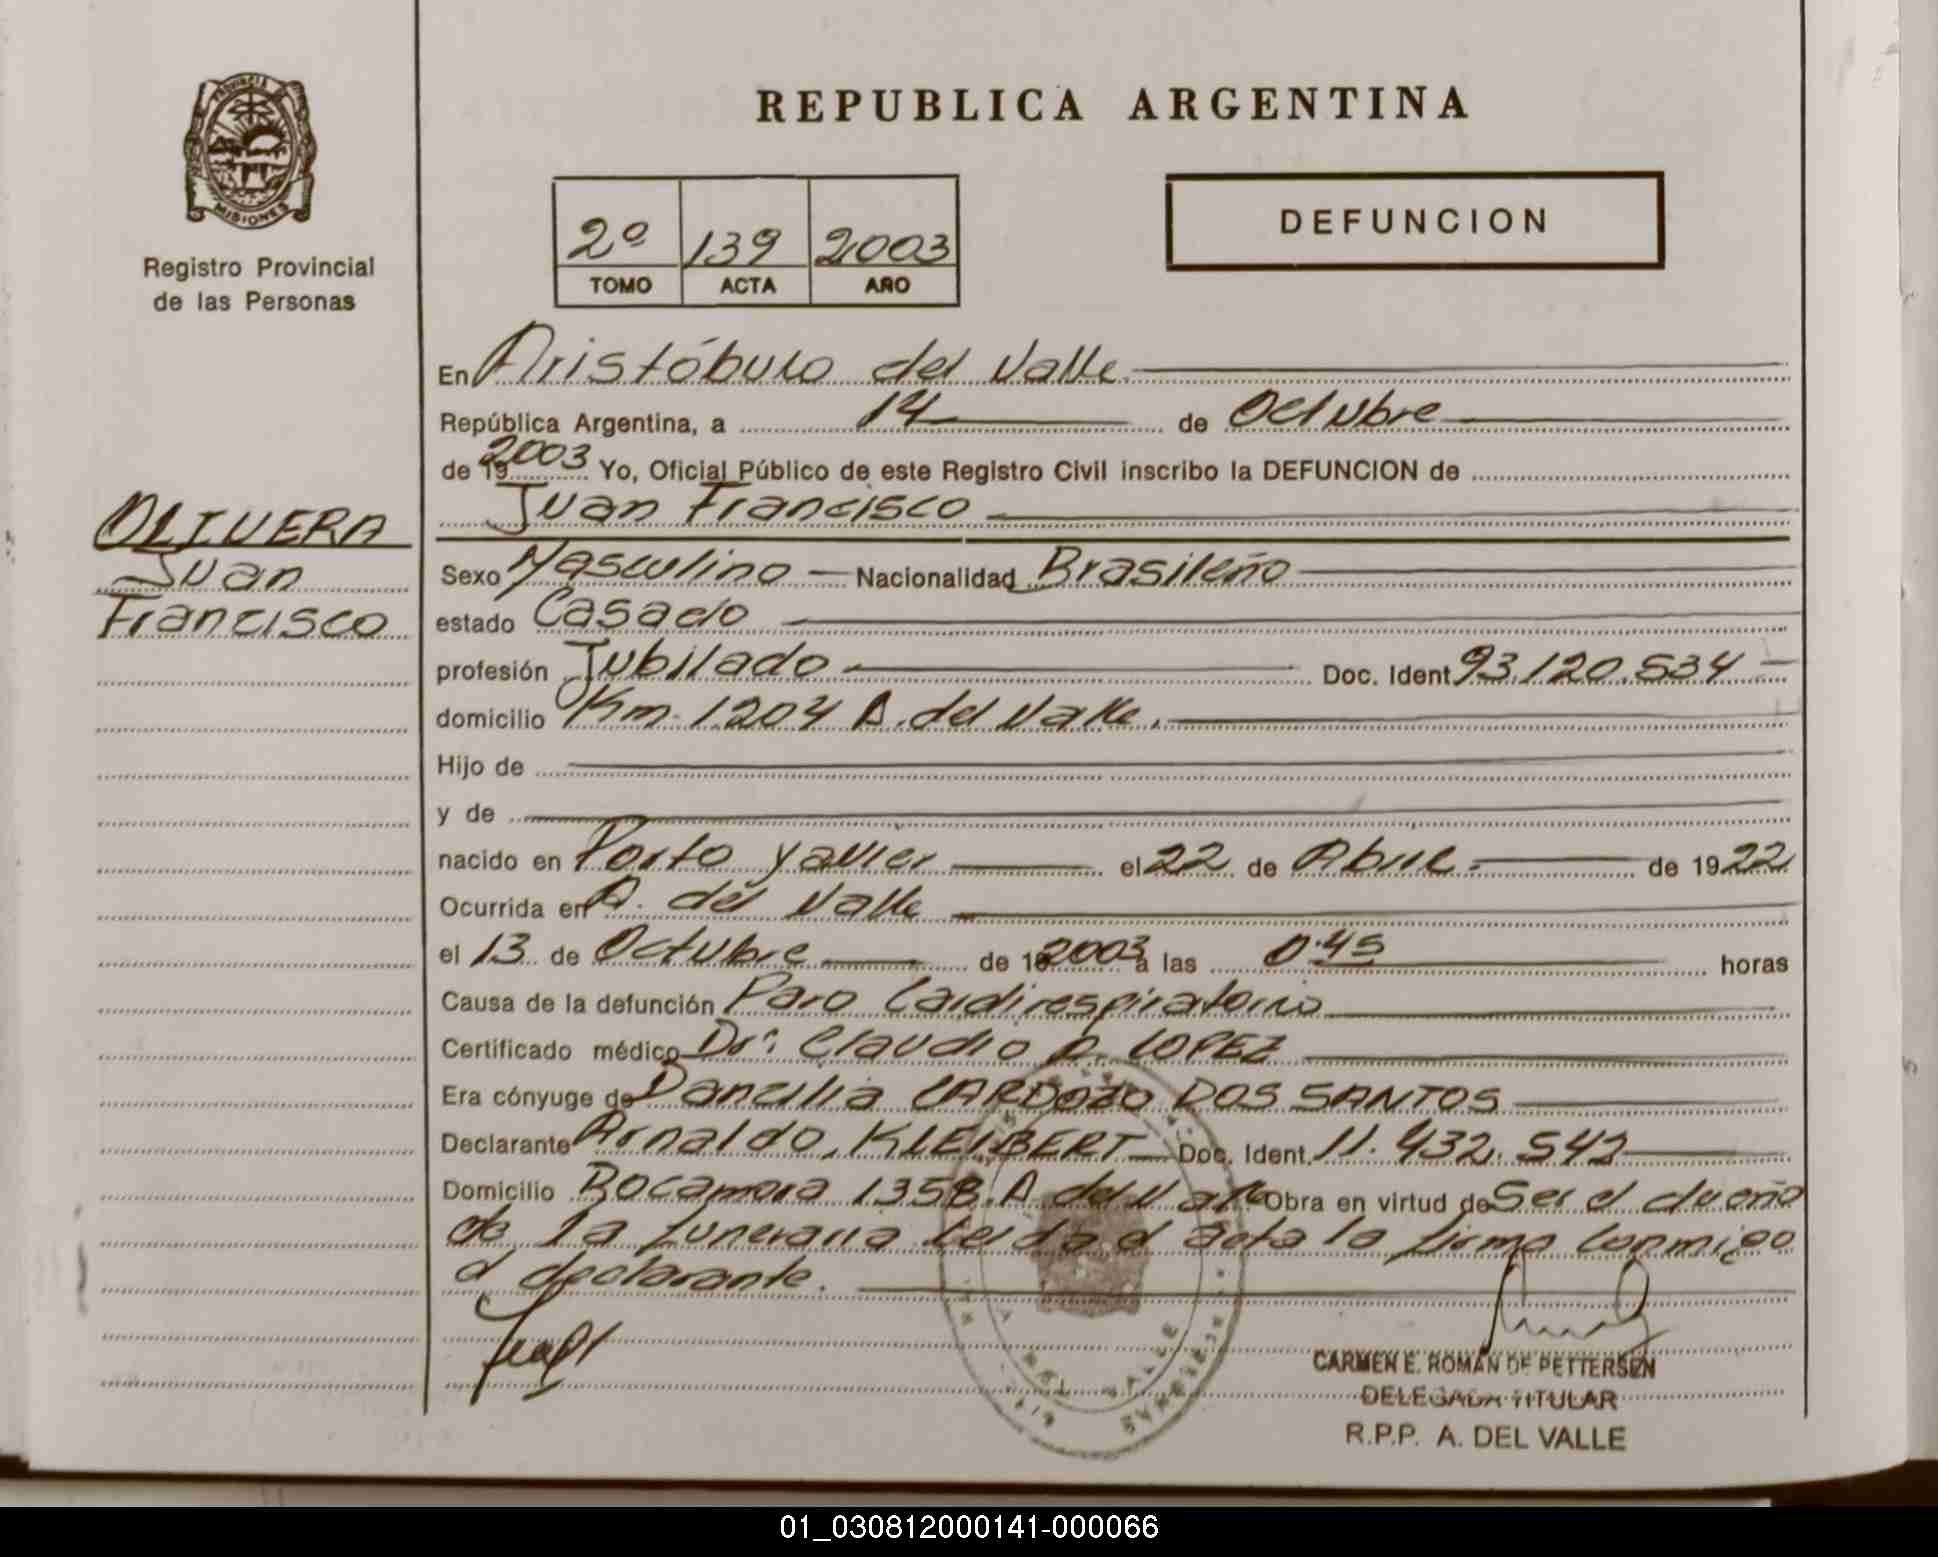 PROVINCIA DE
MISIONES
Registro Provincial
de las Personas
REPUBLICA ARGENTINA
2º 139 2003
TOMO ACTA AÑO
DEFUNCION
En Aristóbulo del Valle
República Argentina, a 14 de Octubre
de 19 2003 Yo, Oficial Público de este Registro Civil inscribo la DEFUNCION de
Juan Francisco
OLIVERA
Juan
Francisco
Sexo Masculino Nacionalidad Brasileño
estado Casado
profesión Jubilado Doc. Ident 93.120.534
domicilio Km. 1204 A. del Valle.
Hijo de
y de
nacido en Porto Xavier el 22 de Abril de 1922
Ocurrida en A. del Valle
el 13 de Octubre de 2003 a las 0.45 horas
Causa de la defunción Paro Cardirespiratorio
Certificado médico Dr. Claudio LOPEZ
Era cónyuge de Dancilia CARDOZO DOS SANTOS
Declarante Arnaldo, KLEIBERT Doc. Ident. 11.432.542
Domicilio Rocamora 1358. A. del Valle Obra en virtud de Ser el dueño
de la funeraria Leida el acta la firma conmigo
el declarante.
CARMEN E. ROMAN DE PETTERSEN
DELEGADA TITULAR
R.P.P. A. DEL VALLE
01_030812000141-000066